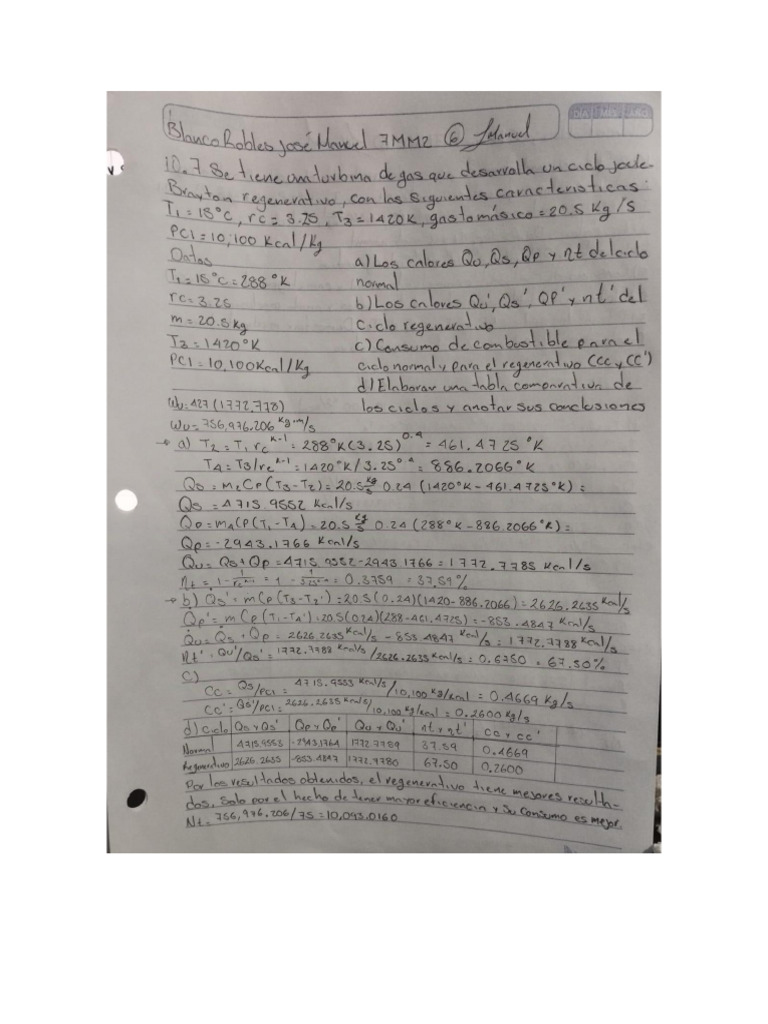 DIA MES AÑO
Blanco Robles José Manuel 7MM2 ⑥ JManuel
10.7 Se tiene una turbina de gas que desarrolla un ciclo joule
Brayton regenerativo, con las siguientes caracteristicas:
T1=15°C, rc=3.25, T3=1420K, gasto másico=20.5 Kg/s
PCI=10,100 Kcal/Kg
Datos
T1=15°C=288°K
rc=3.25
m=20.5kg
T3=1420°K
PCI=10,100Kcal/Kg
Wu=427(1772.778)
Wu=756,976.206 kg-m/s
a) Los calores Qu, Qs, Qp y nt del ciclo
normal
b) Los calores Qu', Qs', QP' y nt' del
ciclo regenerativo
c) Consumo de combustible para el
ciclo normal y para el regenerativo (CC y CC')
d) Elaborar una tabla comparativa de
los ciclos y anotar sus conclusiones
→ a) T2=T1 rc^k-1=288°K(3.25)^0.4=461.4725°K
T4=T3/rc^k-1=1420°K/3.25^0.4=886.2066°K
Qs=m2Cp(T3-T2)=20.5 kg/s 0.24(1420°K-461.4725°K)=
Qs=4715.9552 Kcal/s
Qp=m4Cp(T1-T4)=20.5 kg/s 0.24(288°K-886.2066°K)=
Qp=-2943.1766 Kcal/s
Qu=Qs+Qp=4715.9552-2943.1766=1772.7785 Kcal/s
nt=1-1/rc^k-1=1-1/3.25^0.4=0.3759=37.59%
→ b) Qs'=mCp(T3-T2')=20.5(0.24)(1420-886.2066)=2626.2635 Kcal/s
Qp'=mCp(T1-T4')=20.5(0.24)(288-461.4725)=-853.4847 Kcal/s
Qu=Qs+Qp=2626.2635 Kcal/s-853.4847 Kcal/s=1772.7788 Kcal/s
nt'=Qu'/Qs'=1772.7788 Kcal/s/2626.2635 Kcal/s=0.6750=67.50%
c)
CC=Qs/PCI=4715.9553 Kcal/s/10,100 kg/kcal=0.4669 Kg/s
CC'=Qs'/PCI=2626.2635 Kcal/s/10,100 kg/kcal=0.2600 Kg/s
d) Ciclo Qs y Qs' Qp y Qp' Qu y Qu' nt y nt' CC y CC'
Normal 4715.9553 -2943.1764 1772.7789 37.59 0.4669
Regenerativo 2626.2635 -853.4847 1772.7780 67.50 0.2600
Por los resultados obtenidos, el regenerativo tiene mejores resulta-
dos, Solo por el hecho de tener mayor eficiencia y su consumo es mejor.
Nt=756,976.206/75=10,093.0160